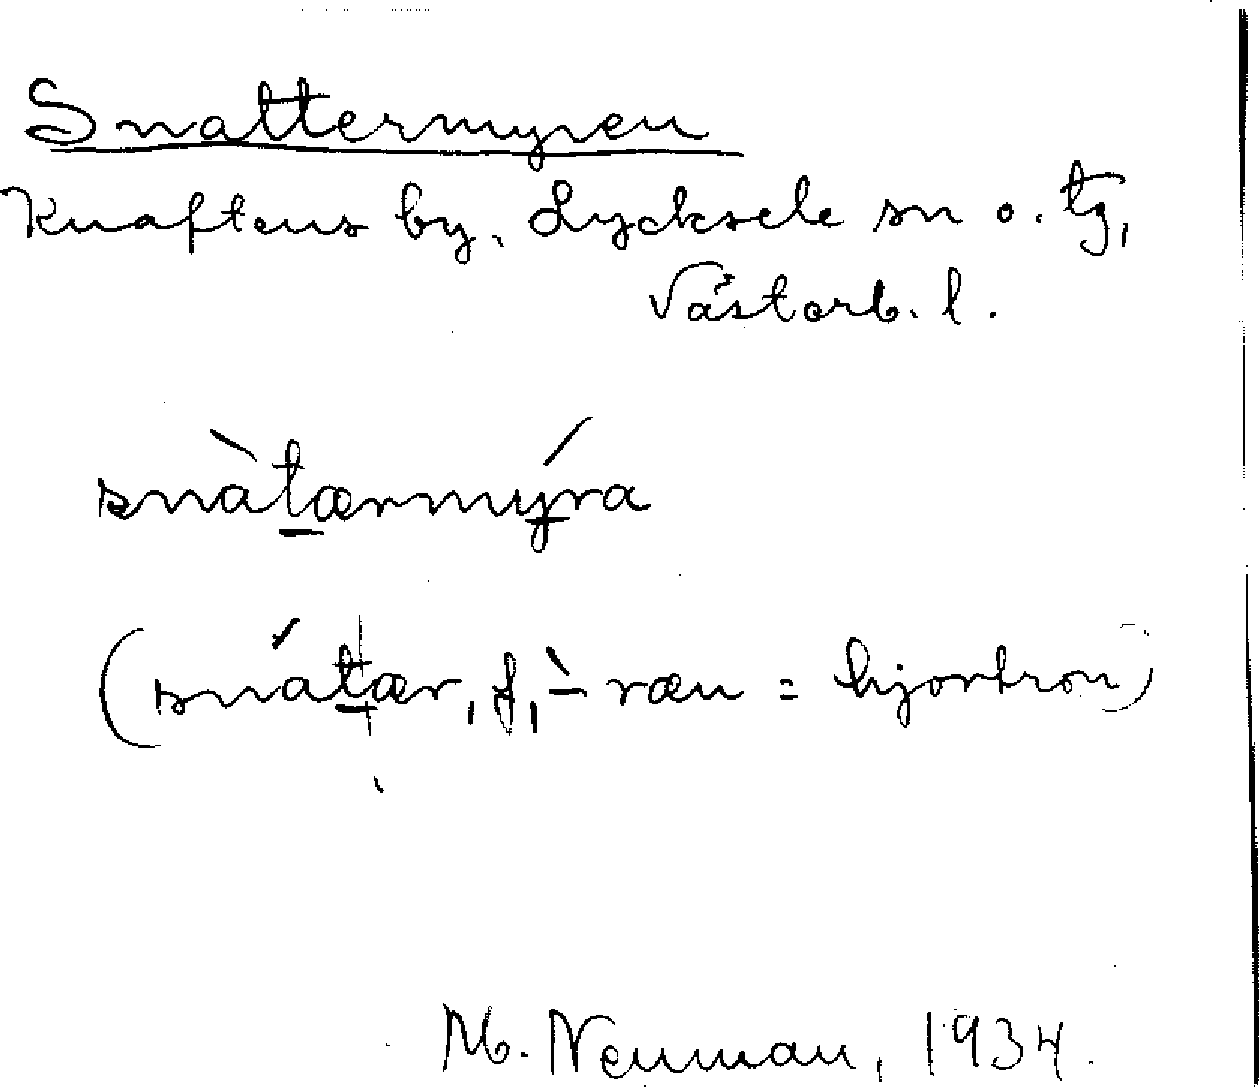 Snattermyren
Knaftens by, Lycksele sn o. tg,
Västerb. l.
snàtærmýra
(snátær, f, -̀ ræn = hjortron)
M. Neuman, 1934.